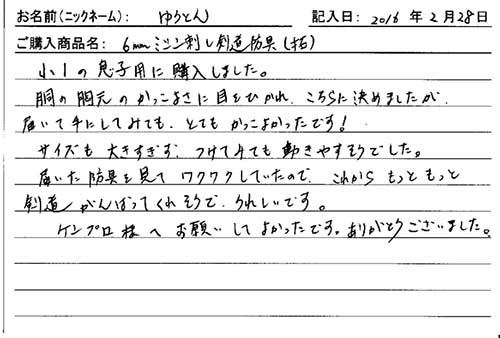 お名前(ニックネーム): ゆうとん 記入日: 2016 年 2 月 28 日
ご購入商品名: 6mmミシン刺し剣道防具(拓)
小1の息子用に購入しました。
胴の胸元のかっこよさに目をひかれ、こちらに決めましたが、
届いて手にしてみても、とてもかっこよかったです!
サイズも大きすぎず、つけてみても動きやすそうでした。
届いた防具を見てワクワクしていたので、これからもっともっと
剣道がんばってくれそうで、うれしいです。
ケンプロ様へお願いしてよかったです。ありがとうございました。